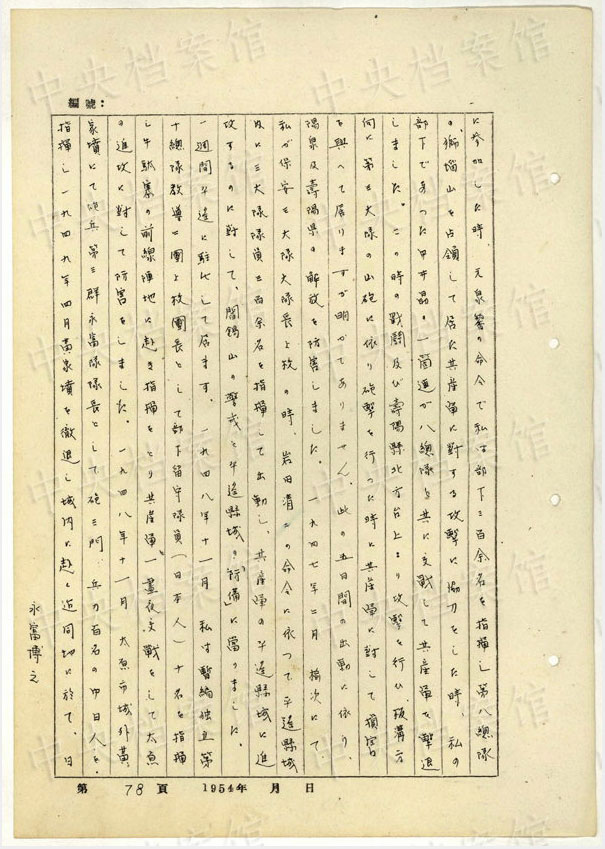 編號：
に參加した時、元泉馨の命令で私は部下三百余名を指揮し第八總隊
の　瑙山を占領して居た共産軍に對する攻擊に協力をした時、私の
部下であった甲斐　の一箇連が八總隊と共に交戰して共産軍を擊退
しました。この時の戰鬪及び壽陽縣北方台上より攻擊を行ひ、　溝方
向に第三大隊の山砲に依り砲擊を行った時に共産軍に對して損害
を與へて居りますが明かでありません。此の五日間の出動に依り、
陽泉及壽陽県の解放を防害しました。一九四七年二月　楡次にて
私が保安三大隊大隊長上校の時、岩田清一の命令に依つて平遙縣城
及に三大隊隊員三百余名を指揮して出動し、共産軍の平遙縣城に進
攻するのに對して、閻錫山の警戒と平遙縣城の「防備」に當りました。
一週間平遙に駐屯して居ます。一九四八年十一月　私は暫編独立第
十總隊教導一團上校團長として部下留守隊員（日本人）十名を指揮
し牛駝寨の前線陣地に赴き指揮をとり共産軍と一晝夜交戰をして太原
の進攻に對して防害をしました。一九四八年十一月　太原市城外黃
家墳にて砲兵第三群永富隊隊長として砲三門　兵力百名の中日人を
指揮し一九四九年四月黃家墳を徹退し城内に赴く迄同地に於て、日
永富博之
第 78 頁 1954年 月 日
中央档案馆